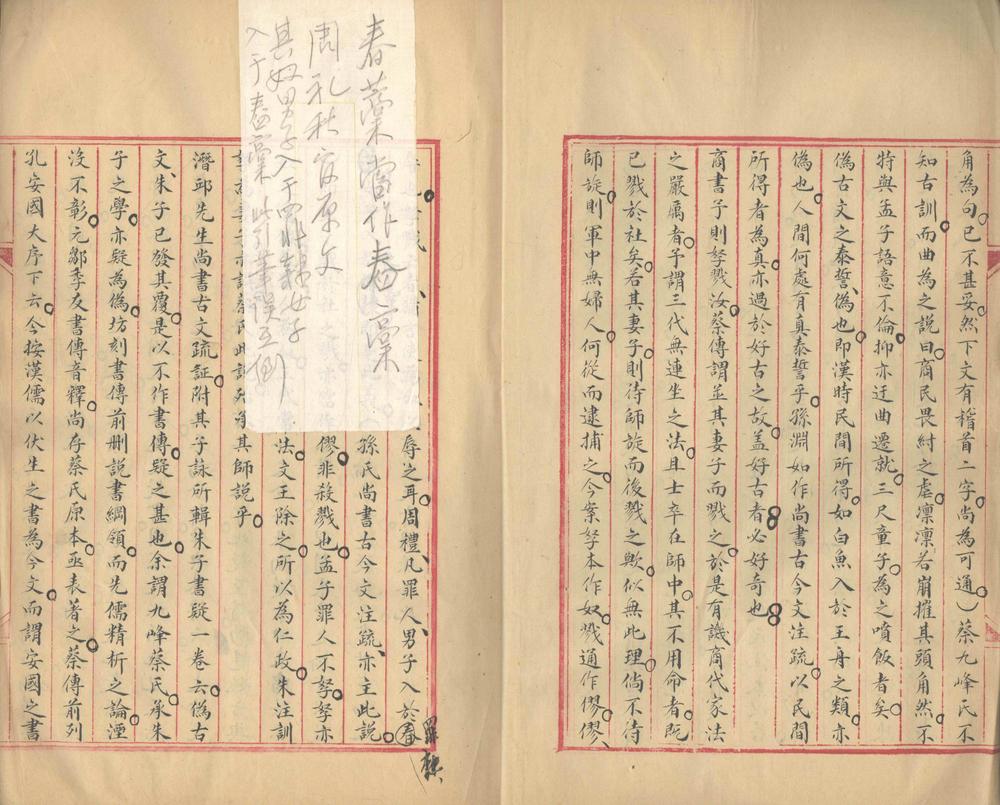 角為句已不甚妥然下文有稽首二字尚為可通）蔡九峰氏不
知古訓而曲為之說曰商民畏紂之虐凜凜若崩摧其頭角然不
特與孟子語意不倫抑亦迂曲遷就三尺童子為之噴飯者矣
偽古文之泰誓偽也即漢時民間所得如白魚入於王舟之類亦
偽也人間何處有真泰誓乎孫淵如作尚書古今文注疏以民間
所得者為真亦過於好古之故盖好古者必好奇也
商書予則孥戮汝蔡傳謂並其妻子而戮之於是有譏商代家法
之嚴厲者予謂三代無連坐之法且士卒在師中其不用命者既
已戮於社矣若其妻子則待師旋而後戮之歟似無此理倘不待
師旋則軍中無婦人何從而逮捕之今案孥本作奴戮通作僇僇
春藁當作舂藁
周礼秋官原文
其奴男子入于罪隸女子
入于舂藁此引華誤互倒
辱之耳周禮凡罪人男子入於舂
罪隸
孫氏尚書古今文注疏亦主此説
僇非殺戮也孟子罪人不孥孥亦
法文王除之所以為仁政朱注訓
其師説乎
潛邱先生尚書古文疏証附其子詠所輯朱子書疑一卷云偽古
文朱子已發其覆是以不作書傳疑之甚也余謂九峰蔡氏承朱
子之學亦疑為偽坊刻書傳前删説書綱領而先儒精析之論湮
沒不彰元鄒季友書傳音釋尚存蔡氏原本亟表著之蔡傳前列
孔安國大序下云今按漢儒以伏生之書為今文而謂安國之書